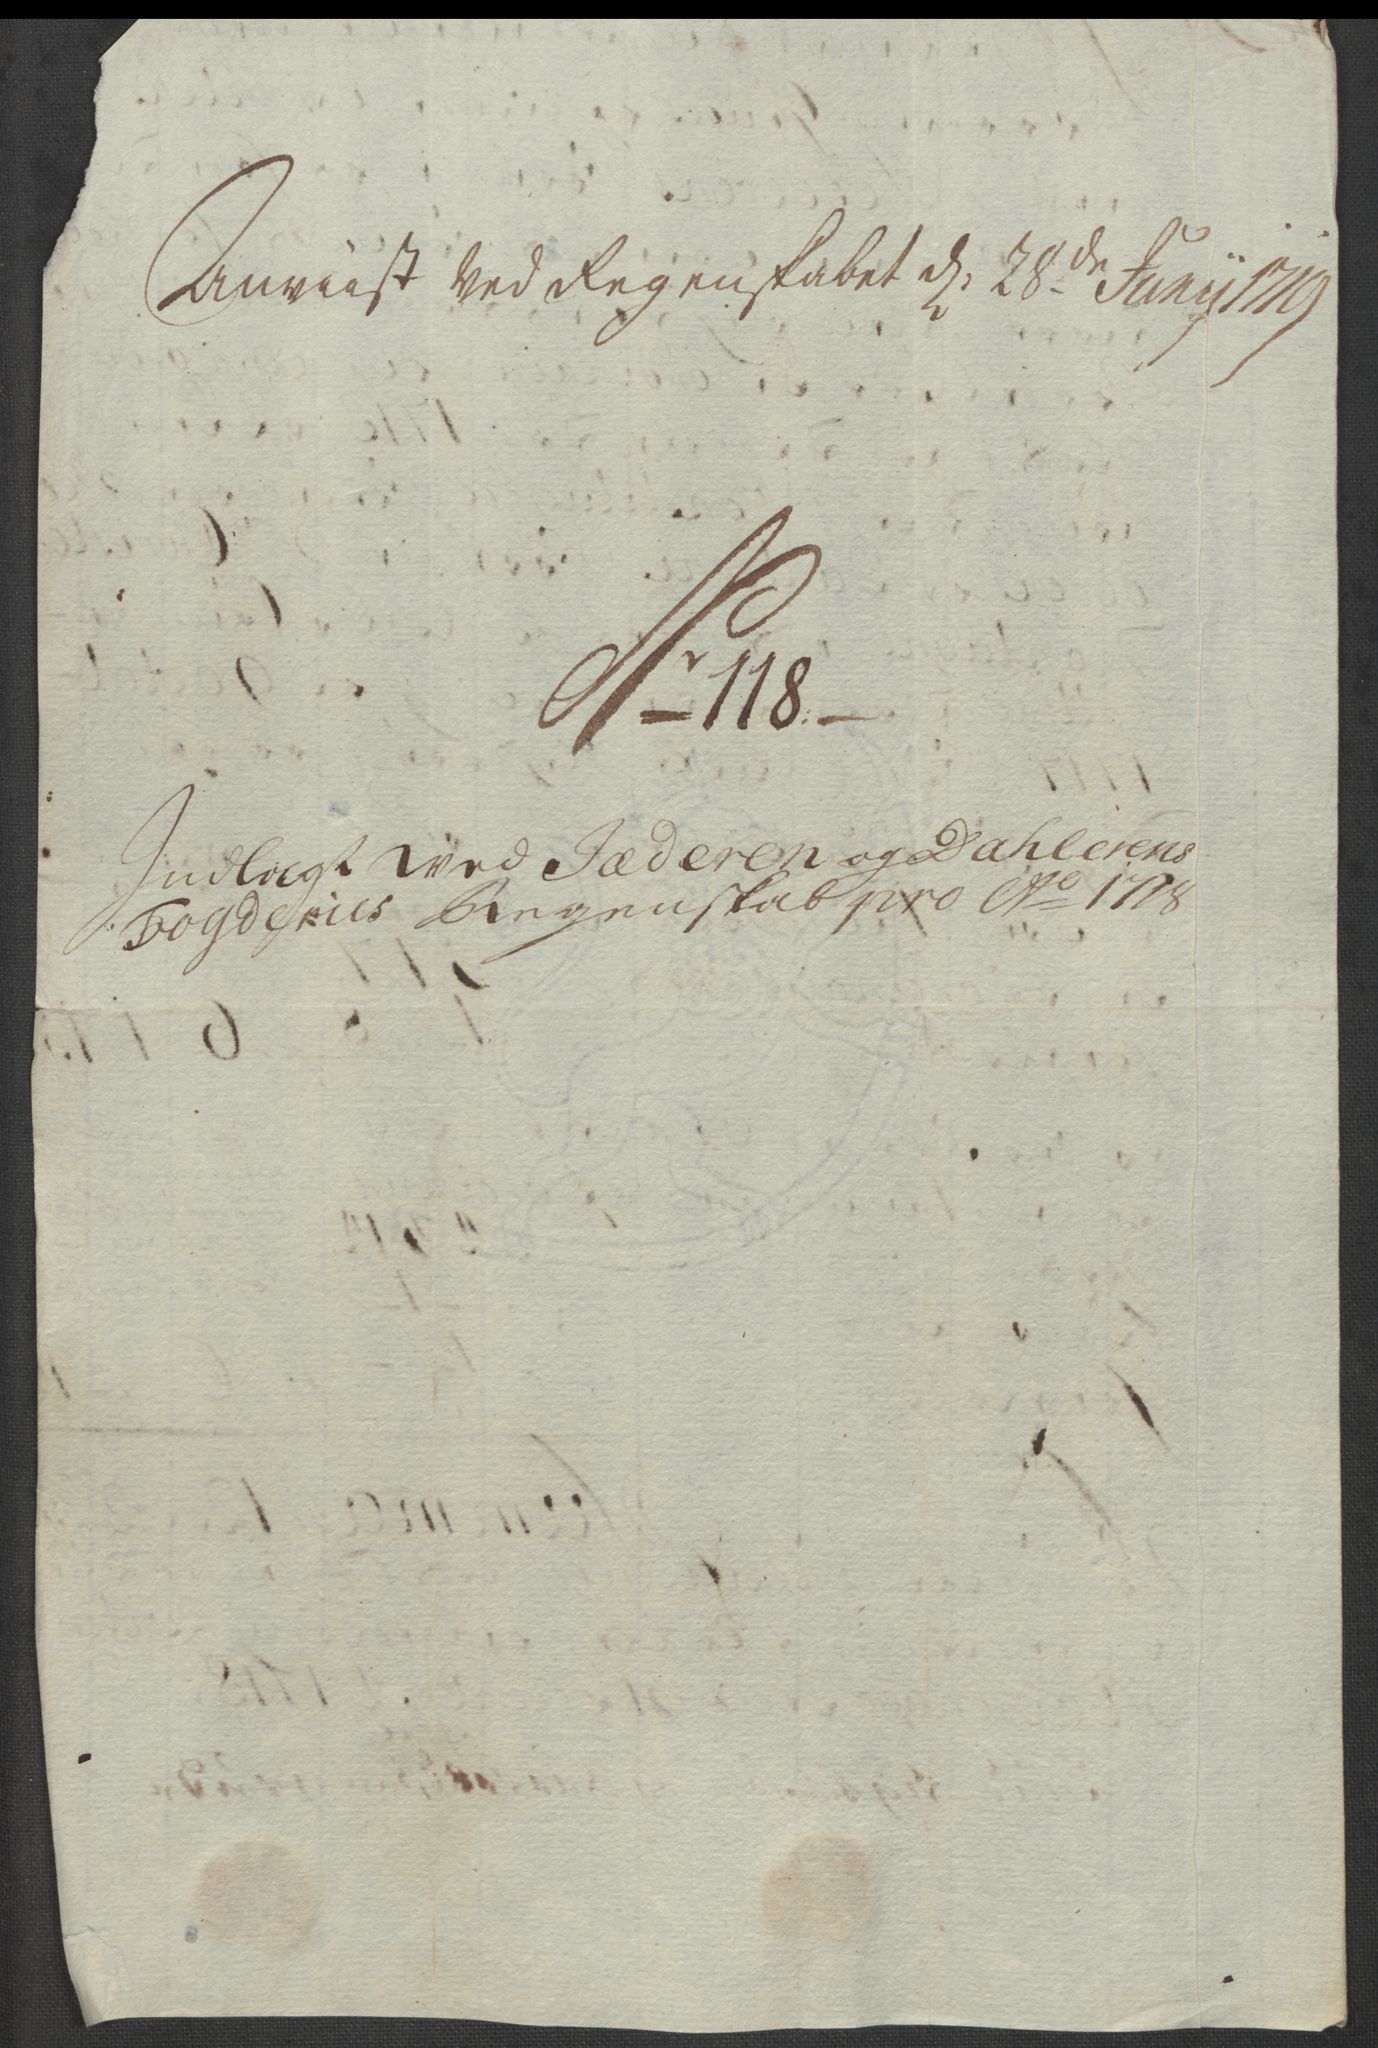 Anviist ved Regenskabet d. 28de Junij 1719
Nr 118.
Indlagt wed Jæderen og Dahlerens
Fogderies Regenskab pro Ao 1718